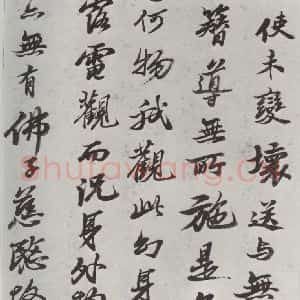 使未變壞送与無
簪導無所施是
何物我觀此幻身
露電觀而况身外物
無有佛子慈愍故
Shufawang.cn